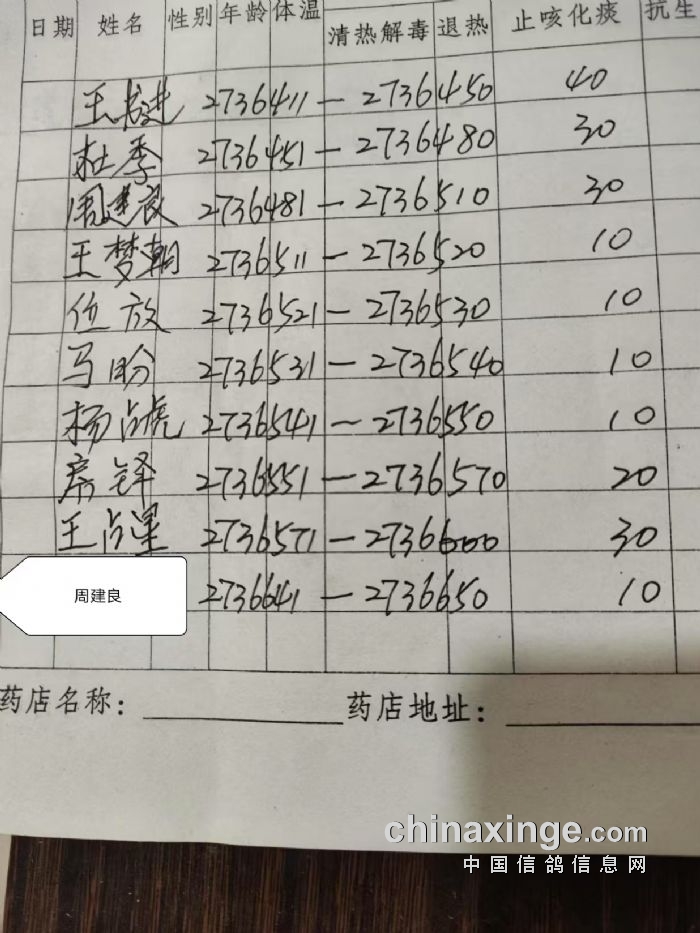 日期 姓名 性别 年龄 体温 清热解毒 退热 止咳化痰 抗生
王 进 2736411 — 2736450 40
杜季 2736451 — 2736480 30
周建良 2736481 — 2736510 30
王梦朝 2736511 — 2736520 10
位放 2736521 — 2736530 10
马盼 2736531 — 2736540 10
杨占虎 2736541 — 2736550 10
席铎 2736551 — 2736570 20
王占星 2736571 — 2736600 30
周建良 2736641 — 2736650 10
药店名称： 药店地址：
chinaxinge.com
中国信鸽信息网